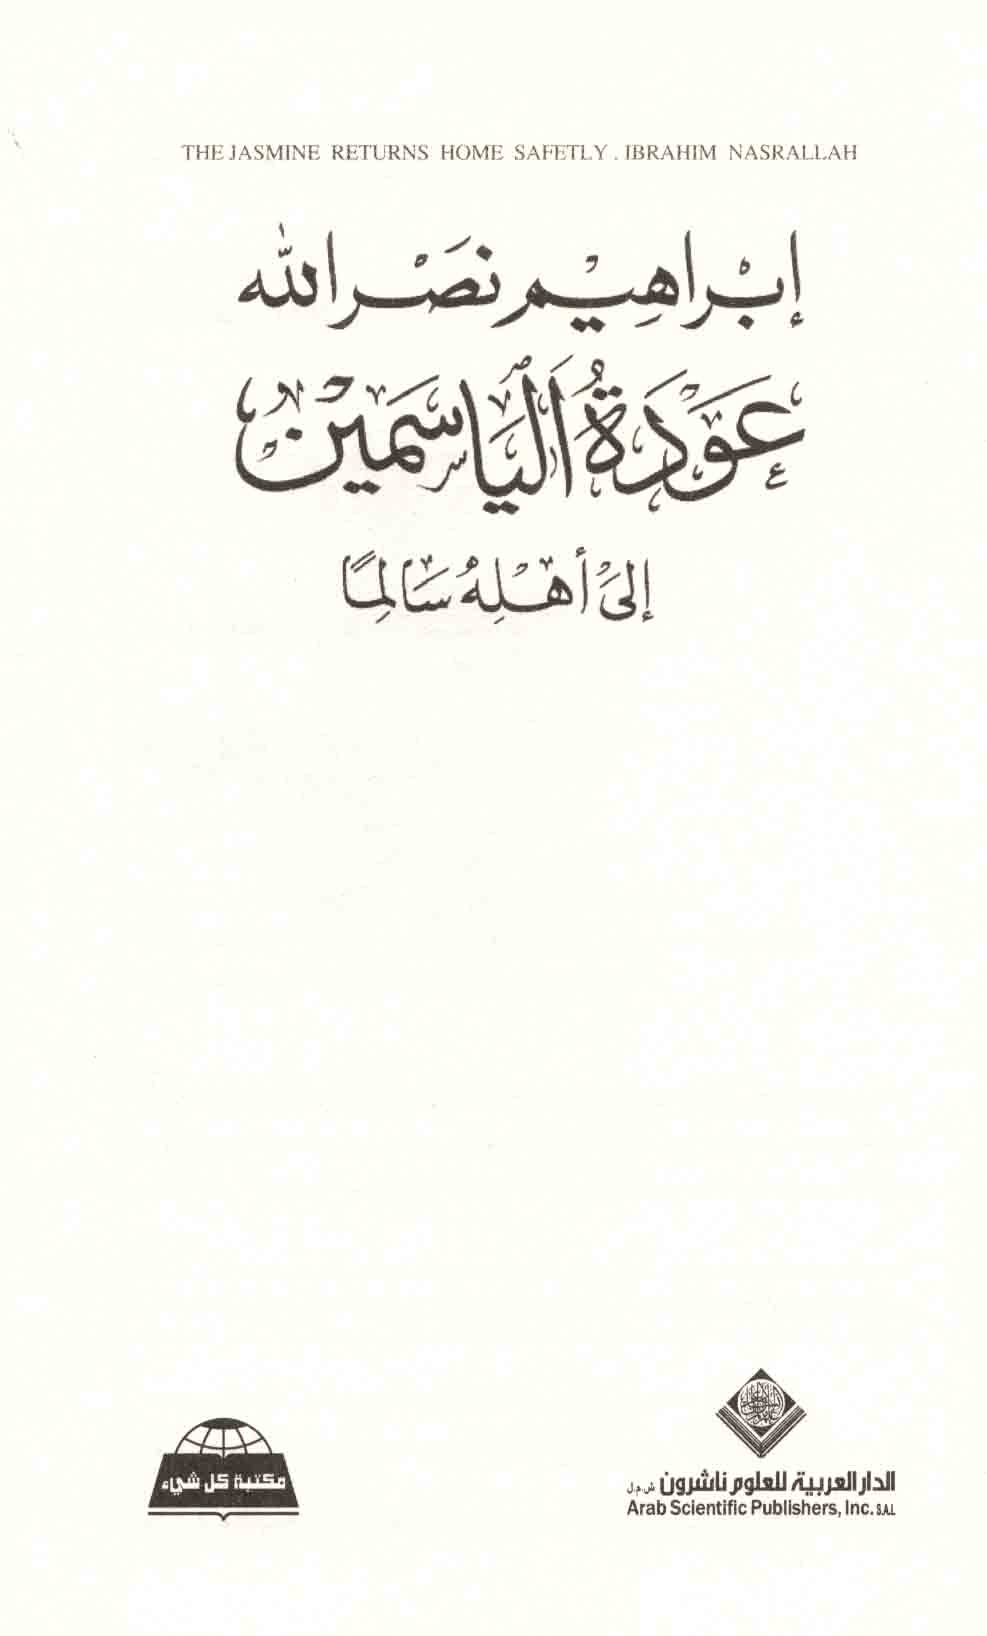 THE JASMINE RETURNS HOME SAFETLY . IBRAHIM NASRALLAH
إبْراهِيْم نصَْر الله
عَوْدَةُ اَليَاسَمَيْن
إلىَْ أهْلِهُ سَالِمًا
مكتبة كل شيء
الدار العربية للعلوم ناشرون ش.م.ل
Arab Scientific Publishers, Inc. S.A.L